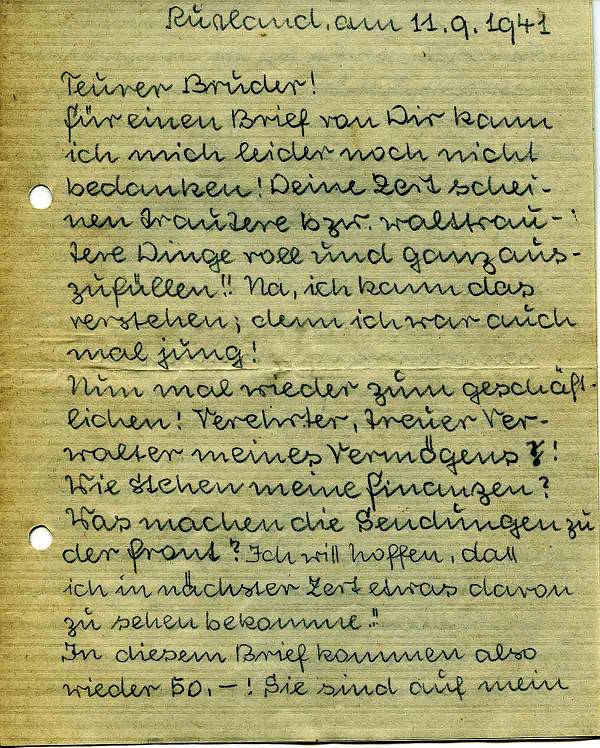 Rußland, am 11.9.1941
Teurer Bruder!
Für einen Brief von Dir kann
ich mich leider noch nicht
bedanken! Deine Zeit schei-
nen trautere bzw. walttrau-
tere Dinge voll und ganz aus-
zufüllen!! Na, ich kann das
verstehen; denn ich war auch
mal jung!
Nun mal wieder zum geschäft-
lichen! Verehrter, treuer Ver-
walter meines Vermögens!
Wie stehen meine Finanzen?
Was machen die Sendungen zu
der Front? Ich will hoffen, daß
ich in nächster Zeit etwas davon
zu sehen bekomme!!
In diesem Brief kommen also
wieder 50.-! Sie sind auf mein